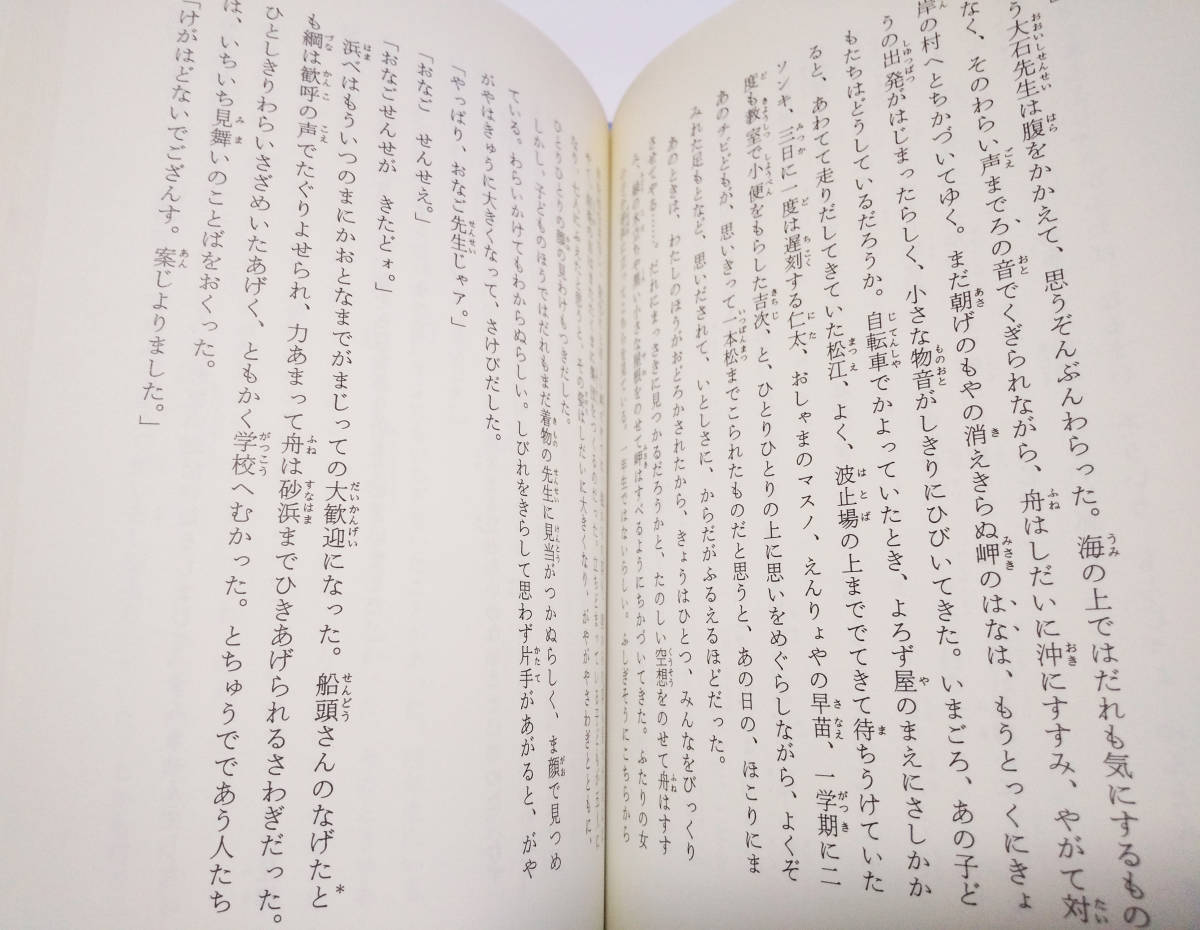 」
う大石先生は腹をかかえて、思うぞんぶんわらった。海の上ではだれも気にするもの
なく、そのわらい声までろの音でくぎられながら、舟はしだいに沖にすすみ、やがて対
岸の村へとちかづいてゆく。まだ朝げのもやの消えきらぬ岬のはなは、もうとっくにきょ
うの出発がはじまったらしく、小さな物音がしきりにひびいてきた。いまごろ、あの子ど
もたちはどうしているだろうか。自転車でかよっていたとき、よろず屋のまえにさしかか
ると、あわてて走りだしてきていた松江、よく、波止場の上まででてきて待ちうけていた
ソンキ、三日に一度は遅刻する仁太、おしゃまのマスノ、えんりょやの早苗、一学期に二
度も教室で小便をもらした吉次、と、ひとりひとりの上に思いをめぐらしながら、よくぞ
あのチビどもが、思いきって一本松までこられたものだと思うと、あの日の、ほこりにま
みれた足もとなど、思いだされて、いとしさに、からだがふるえるほどだった。
あのときは、わたしのほうがおどろかされたから、きょうはひとつ、みんなをびっくり
させてやる……。だれにまっさきに見つかるだろうかと、たのしい空想をのせて舟はすす
小さな屋根をのせて岬はすべるようにちかづいてきた。ふたりの女
一年生ではないらしい。ふしぎそうにこちらから
その姿はしだいに大きくなり、がやがやさわぎとともに、
ひとりひとりの顔の見わけもつきだした。
しかし、子どものほうではだれもまだ着物の先生に見当がつかぬらしく、ま顔で見つめ
ている。わらいかけてもわからぬらしい。しびれをきらして思わず片手があがると、がや
がやはきゅうに大きくなって、さけびだした。
「やっぱり、おなご先生じゃァ。」
「おなご　せんせえ。」
「おなごせんせが　きたどォ。」
浜べはもういつのまにかおとなまでがまじっての大歓迎になった。船頭さんのなげたと*
も綱は歓呼の声でたぐりよせられ、力あまって舟は砂浜までひきあげられるさわぎだった。
ひとしきりわらいさざめいたあげく、ともかく学校へむかった。とちゅうであう人たち
は、いちいち見舞いのことばをおくった。
「けがはどないでござんす。案じよりました。」